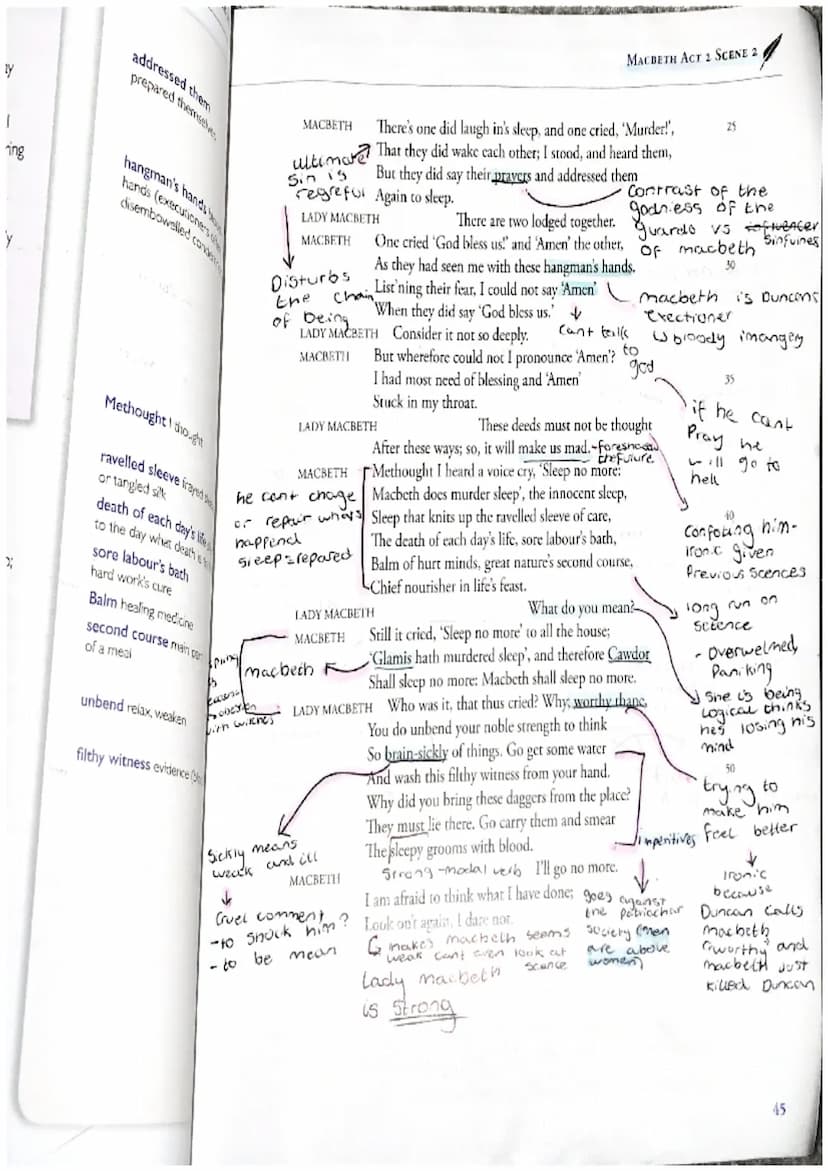 MACBETH ACT 2 SCENE 2
addressed them
prepared themselves
hangman's hands
hands (executioners
disembowelled
Methought I thought
ravelled sleeve frayed
or tangled silk
death of each day's life
to the day what death is
sore labour's bath
hard work's cure
Balm healing medicine
second course main
of a meal
unbend relax, weaken
filthy witness evidence
MACBETH There's one did laugh in's sleep, and one cried, 'Murder!', 25
That they did wake each other; I stood, and heard them,
But they did say their prayers and addressed them
Again to sleep.
LADY MACBETH There are two lodged together.
MACBETH One cried 'God bless us!' and 'Amen' the other,
As they had seen me with these hangman's hands. 30
List'ning their fear, I could not say 'Amen'
When they did say 'God bless us.'
LADY MACBETH Consider it not so deeply.
MACBETH But wherefore could not I pronounce 'Amen'?
I had most need of blessing and 'Amen' 35
Stuck in my throat.
LADY MACBETH These deeds must not be thought
After these ways; so, it will make us mad.
MACBETH Methought I heard a voice cry, 'Sleep no more:
Macbeth does murder sleep', the innocent sleep,
Sleep that knits up the ravelled sleeve of care, 40
The death of each day's life, sore labour's bath,
Balm of hurt minds, great nature's second course,
Chief nourisher in life's feast.
LADY MACBETH What do you mean?
MACBETH Still it cried, 'Sleep no more' to all the house;
'Glamis hath murdered sleep', and therefore Cawdor
Shall sleep no more: Macbeth shall sleep no more.
LADY MACBETH Who was it, that thus cried? Why, worthy thane,
You do unbend your noble strength to think
So brain-sickly of things. Go get some water 50
And wash this filthy witness from your hand.
Why did you bring these daggers from the place?
They must lie there. Go carry them and smear
The sleepy grooms with blood.
MACBETH I'll go no more.
I am afraid to think what I have done;
Look on't again, I dare not.
ultimate
sin is
regreful
Disturbs
the chain
of being
Contrast of the
godness of the
guards vs
of macbeth sinfulnes
macbeth is Duncans
exectioner
bloody imangery
cant talk
to
god
if he cant
Pray he
will go to
hell
foreshadow
the future
he cant chage
or repair whats
happend
sleep=repared
Confoting him-
ironic given
Previous scences
long run on
- overwelmed,
Paniking
macbeth
with witches
She is being
logical thinks
hes losing his
mind
trying to
make him
feel better
Ironic
because
Duncan calls
Macbeth
"worthy" and
macbeth just
killed Duncan
impenitives
goes against
the patriochar
society (men
are above
women)
Sickly means
weak and ill
Cruel comment
-to shock him?
- to be mean
Strong -modal verb
makes macbeth seems
weak cant even look at
scence
Lady macbeth
is Strong
45